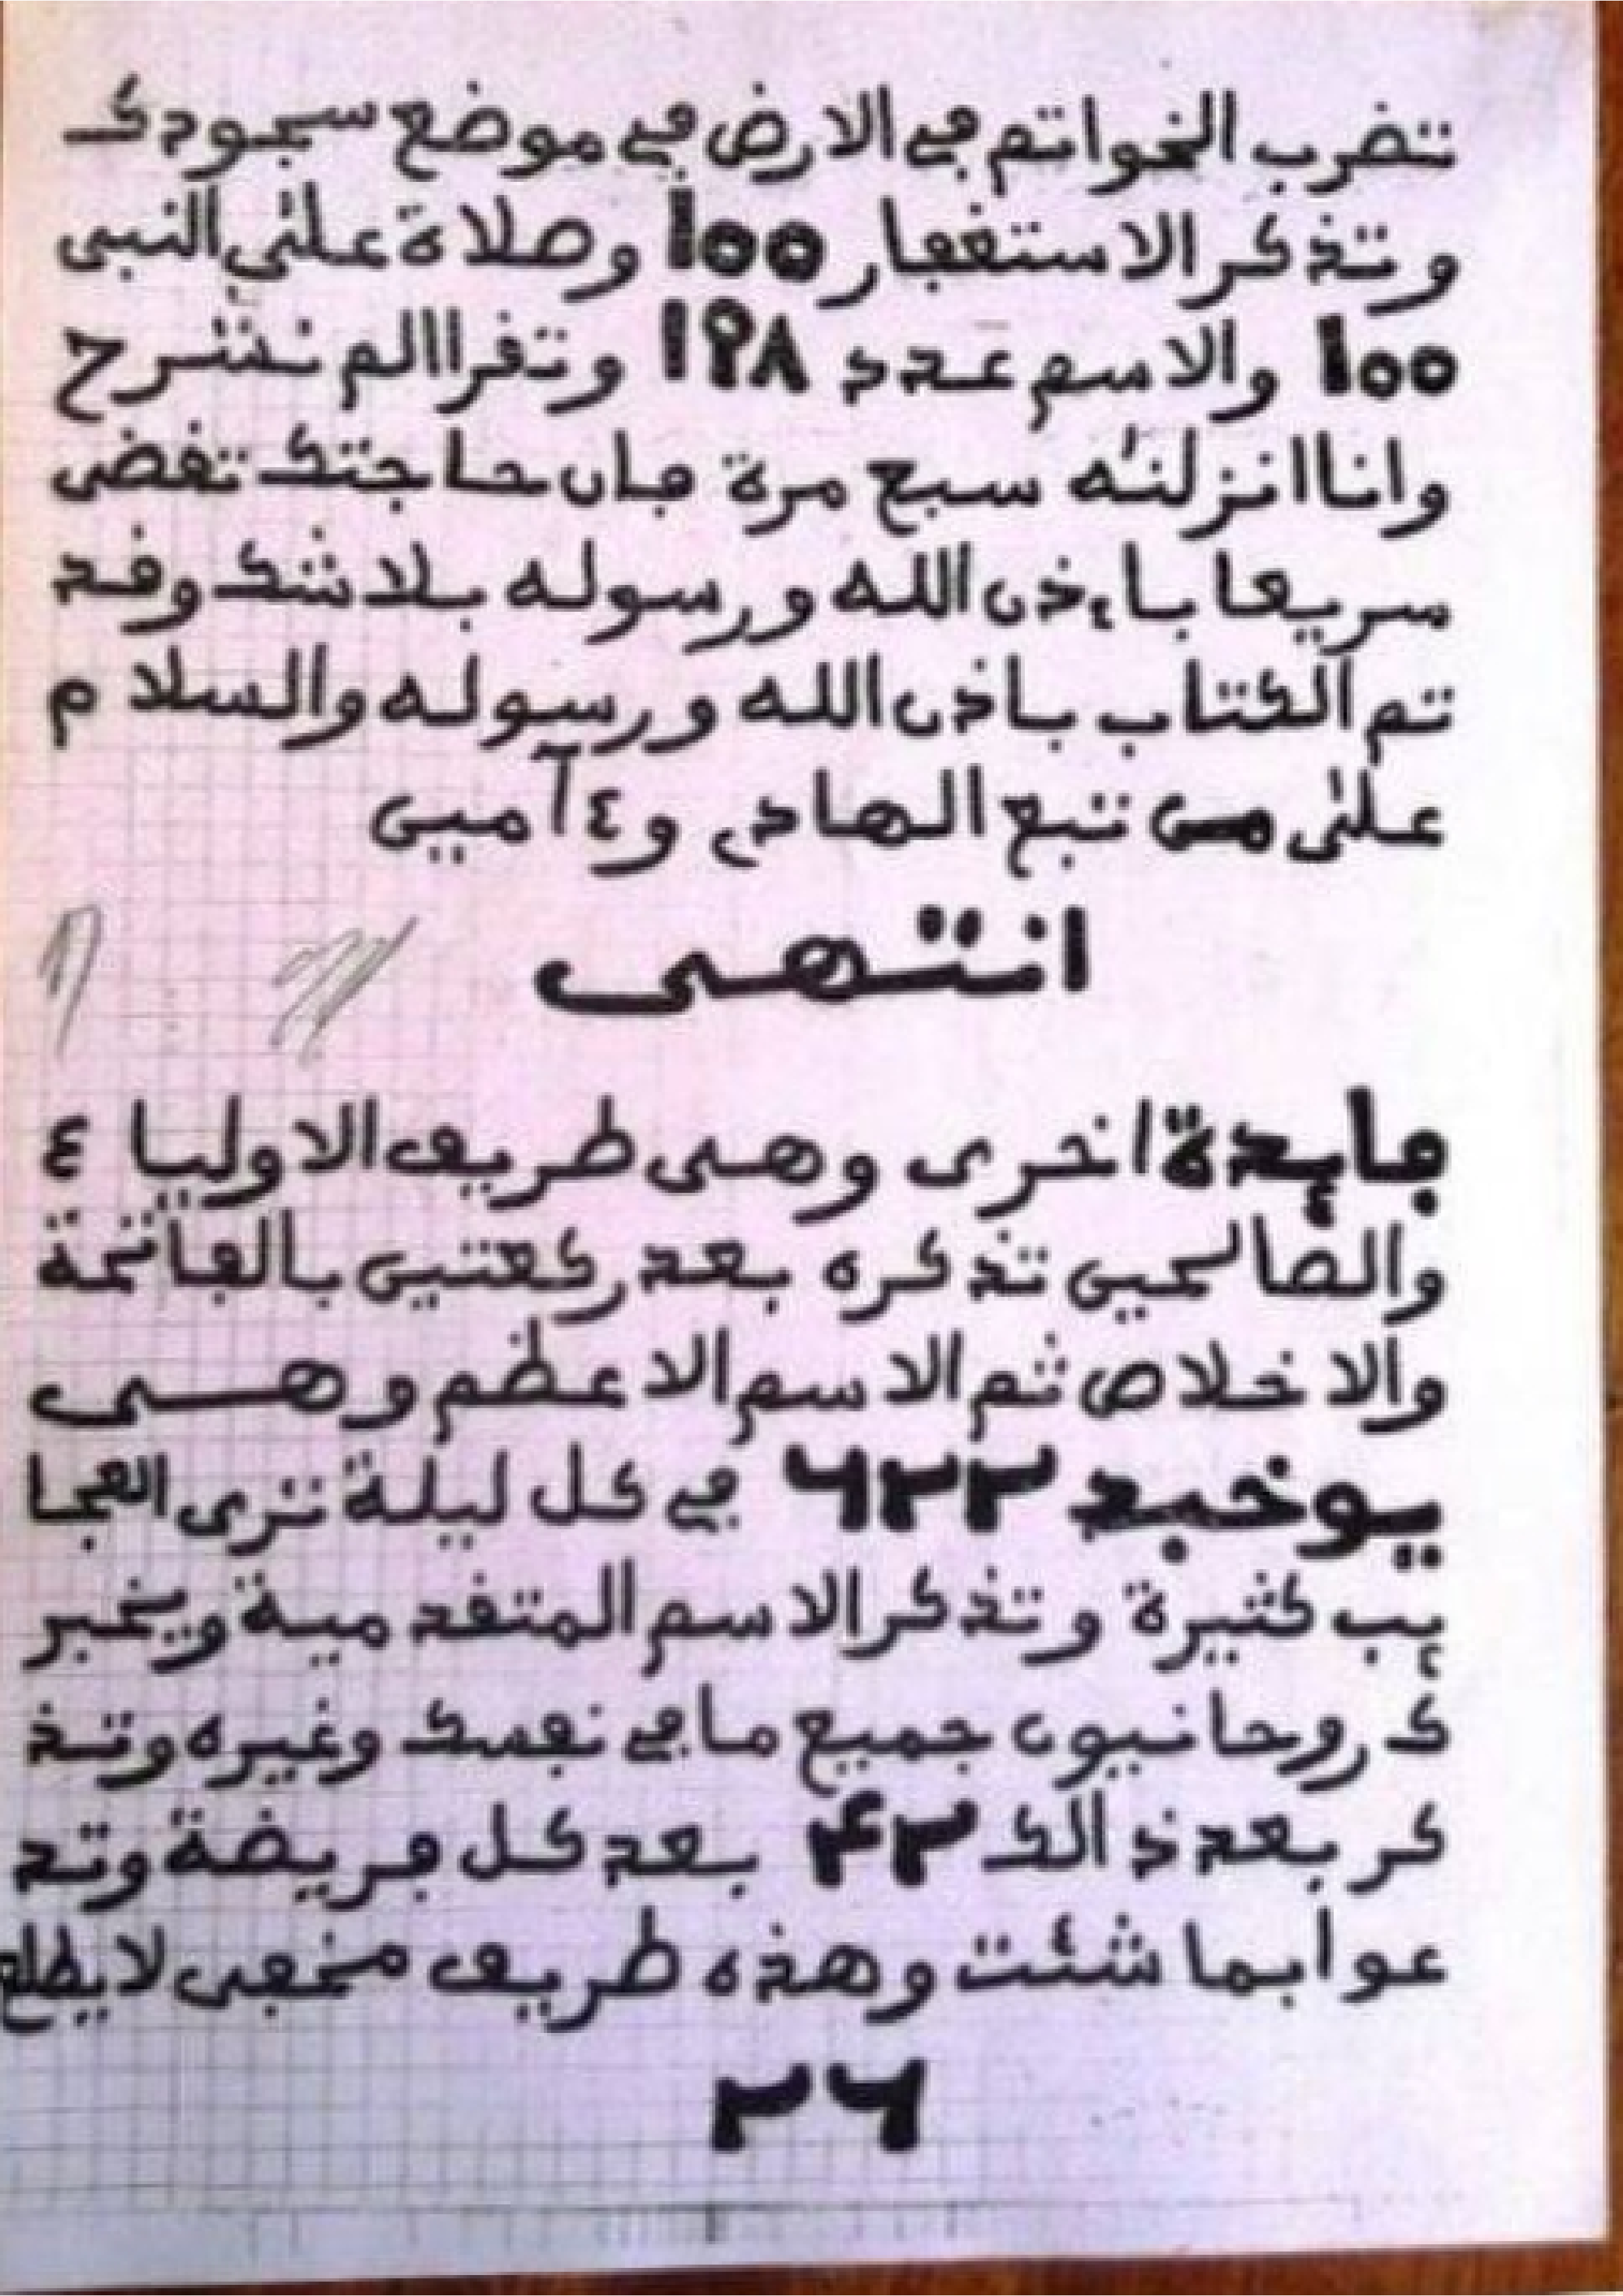 تضرب الخواتم ڢي الارض ڢي موضع سجودك
وتذكر الاستغڢار 100 وصلاة على النبي
100 والاسم عدد 198 وتفرا الم نشرح
وانا انزلنٰه سبع مرة ڢاں حاجتك تفضى
سريعا باءذں الله ورسوله بلا شك وفد
تم الكتاب باذں الله ورسوله والسلام
على مں تبع الهادى وءآميں
انتهى
ڢايدة اخرى وهى طريف الاولياء
والصالحيں تذكره بعد ركعتيں بالڢاتحة
والاخلاص ثم الاسم الاعظم وهـــى
يوخبد ٦٢٢ ڢي كل ليلة ترى العجا
ئب كثيرة وتذكر الاسم المتفد مية ويخبر
ك روحانيوں جميع ما ڢي نڢسك وغيره وتذ
كر بعد ذالك ٤٢ بعد كل ڢريضة وتد
عوا بما شئت وهذه طريف مخڢى لا يطلع
٢٦